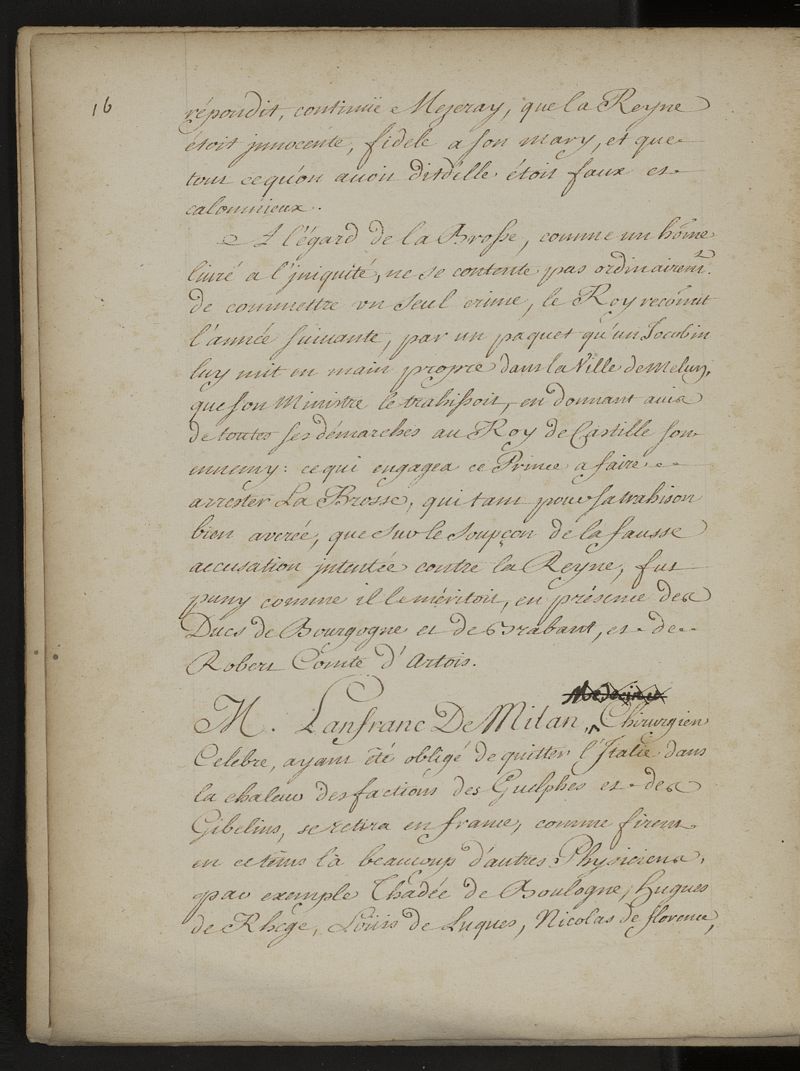 16
répondit, continüe Mezeray, que la Reyne
étoit jnnocente, fidele a son mary, et que
tout cequ'on auoit dit d'Elle étoit faux et
calomnieux.
A l'égard de la Brosse, comme un hôme
livré a l'jniquité, ne se contente pas ordinairemt.
de commettre vn seul crime, le Roy reconnut
l'année suiuante, par un paquet qu'un Jacobin
luy mit en main propre dans la Ville de Melun,
que son Ministre le trahissoit, en donnant auis
de toutes ses démarches au Roy de Castille son
ennemy: ce qui engagea ce Prince a faire
arrester La Brosse, qui tant pour sa trahison
bien averée, que sur le soupçon de la fausse
accusation jntentée contre la Reyne, fut
puny comme il le méritoit, en présence des
Ducs de Bourgogne et de Brabant, et de
Robert Comte d'Artois.
Medecin et
M. Lanfranc De Milan, Chirurgien
Celebre, ayant été obligé de quitter l'Italie dans
la chaleur des factions des Guelphes et des
Gibelins, se retira en france, comme firent
en ce tems là beaucoup d'autres Physiciens,
par exemple Thadée de Boulogne, Hugues
de Rhege, Loüis de Luques, Nicolas de florence,